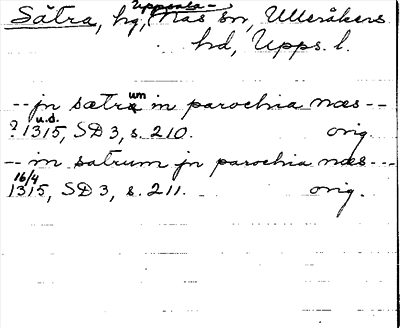 Sätra, hg, Uppsala-Näs sn, Ulleråkers
hd, Upps. l.
-- jn sætraum in parochia næs --
? u.d. 1315, SD 3, s. 210. orig.
-- in satrum jn parochia næs --
16/4 1315, SD 3, s. 211. orig.